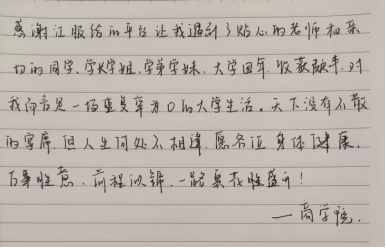 感谢江服给的平台让我遇到了贴心的老师和亲
切的同学、学长学姐、学弟学妹、大学四年,收获颇丰,对
我而言是一场重复率为0的大学生活。天下没有不散
的宴席,但人生何处不相逢,愿各位身体健康,
万事胜意,前程似锦,一路繁花胜盛开!
——商学院.